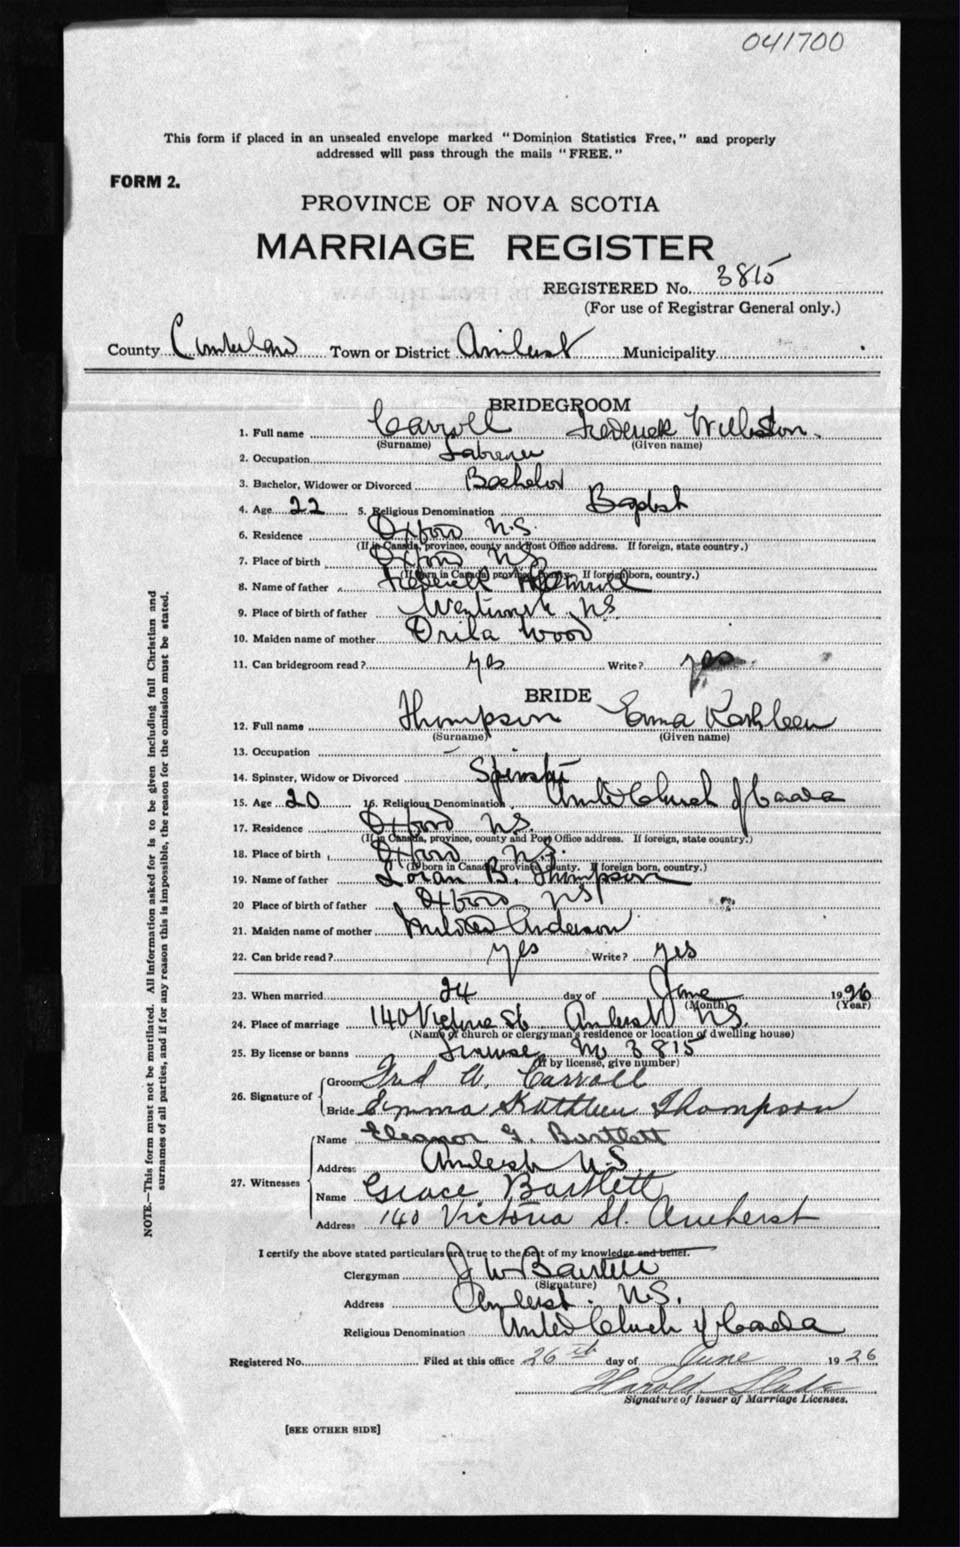 041700
This form if placed in an unsealed envelope marked "Dominion Statistics Free," and properly
addressed will pass through the mails "FREE."
FORM 2.
PROVINCE OF NOVA SCOTIA
MARRIAGE REGISTER
REGISTERED No. 3815
(For use of Registrar General only.)
County Cumberland Town or District Amherst Municipality
BRIDEGROOM
1. Full name Carroll Frederick Williston.
(Surname) (Given name)
2. Occupation Laborer
3. Bachelor, Widower or Divorced Bachelor
4. Age 22 5. Religious Denomination Baptist
6. Residence Oxford N.S.
(If in Canada, province, county and Post Office address. If foreign, state country.)
7. Place of birth Oxford N.S.
(If born in Canada, province, county. If foreign born, country.)
8. Name of father Frederick
9. Place of birth of father N.S.
10. Maiden name of mother Orila Wood
11. Can bridegroom read? yes Write? yes
BRIDE
12. Full name Thompson Emma Kathleen
(Surname) (Given name)
13. Occupation —
14. Spinster, Widow or Divorced Spinster
15. Age 20 16. Religious Denomination United Church of Canada
17. Residence Oxford N.S.
(If in Canada, province, county and Post Office address. If foreign, state country.)
18. Place of birth Oxford N.S.
(If born in Canada, province, county. If foreign born, country.)
19. Name of father Loran B. Thompson
20 Place of birth of father Oxford N.S.
21. Maiden name of mother Mildred Anderson
22. Can bride read? yes Write? yes
23. When married 24 day of June 1926
(Month) (Year)
24. Place of marriage 140 Victoria St. Amherst N.S.
(Name of church or clergyman's residence or location of dwelling house)
25. By license or banns License No 3815
(If by license, give number)
26. Signature of
Groom Fred W. Carroll
Bride Emma Kathleen Thompson
27. Witnesses
Name Eleanor G. Bartlett
Address Amherst N.S.
Name Grace Bartlett
Address 140 Victoria St. Amherst
I certify the above stated particulars are true to the best of my knowledge and belief.
Clergyman J W Bartlett
(Signature)
Address Amherst. N.S.
Religious Denomination United Church of Canada
Registered No. Filed at this office 26th day of June 1926
Harold Slade
Signature of Issuer of Marriage Licenses.
[SEE OTHER SIDE]
NOTE.—This form must not be mutilated. All information asked for is to be given including full Christian and
surnames of all parties, and if for any reason this is impossible, the reason for the omission must be stated.